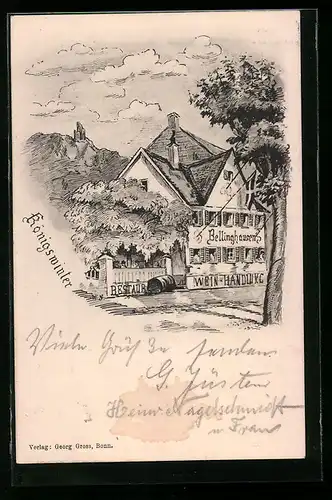 Königswinter
Bellinghausen
RESTAUR
WEIN-HANDLUNG
Viele Grüße senden
G. Jüsten
Heinr Nagelschmidt
u Frau
Verlag: Georg Gross, Bonn.